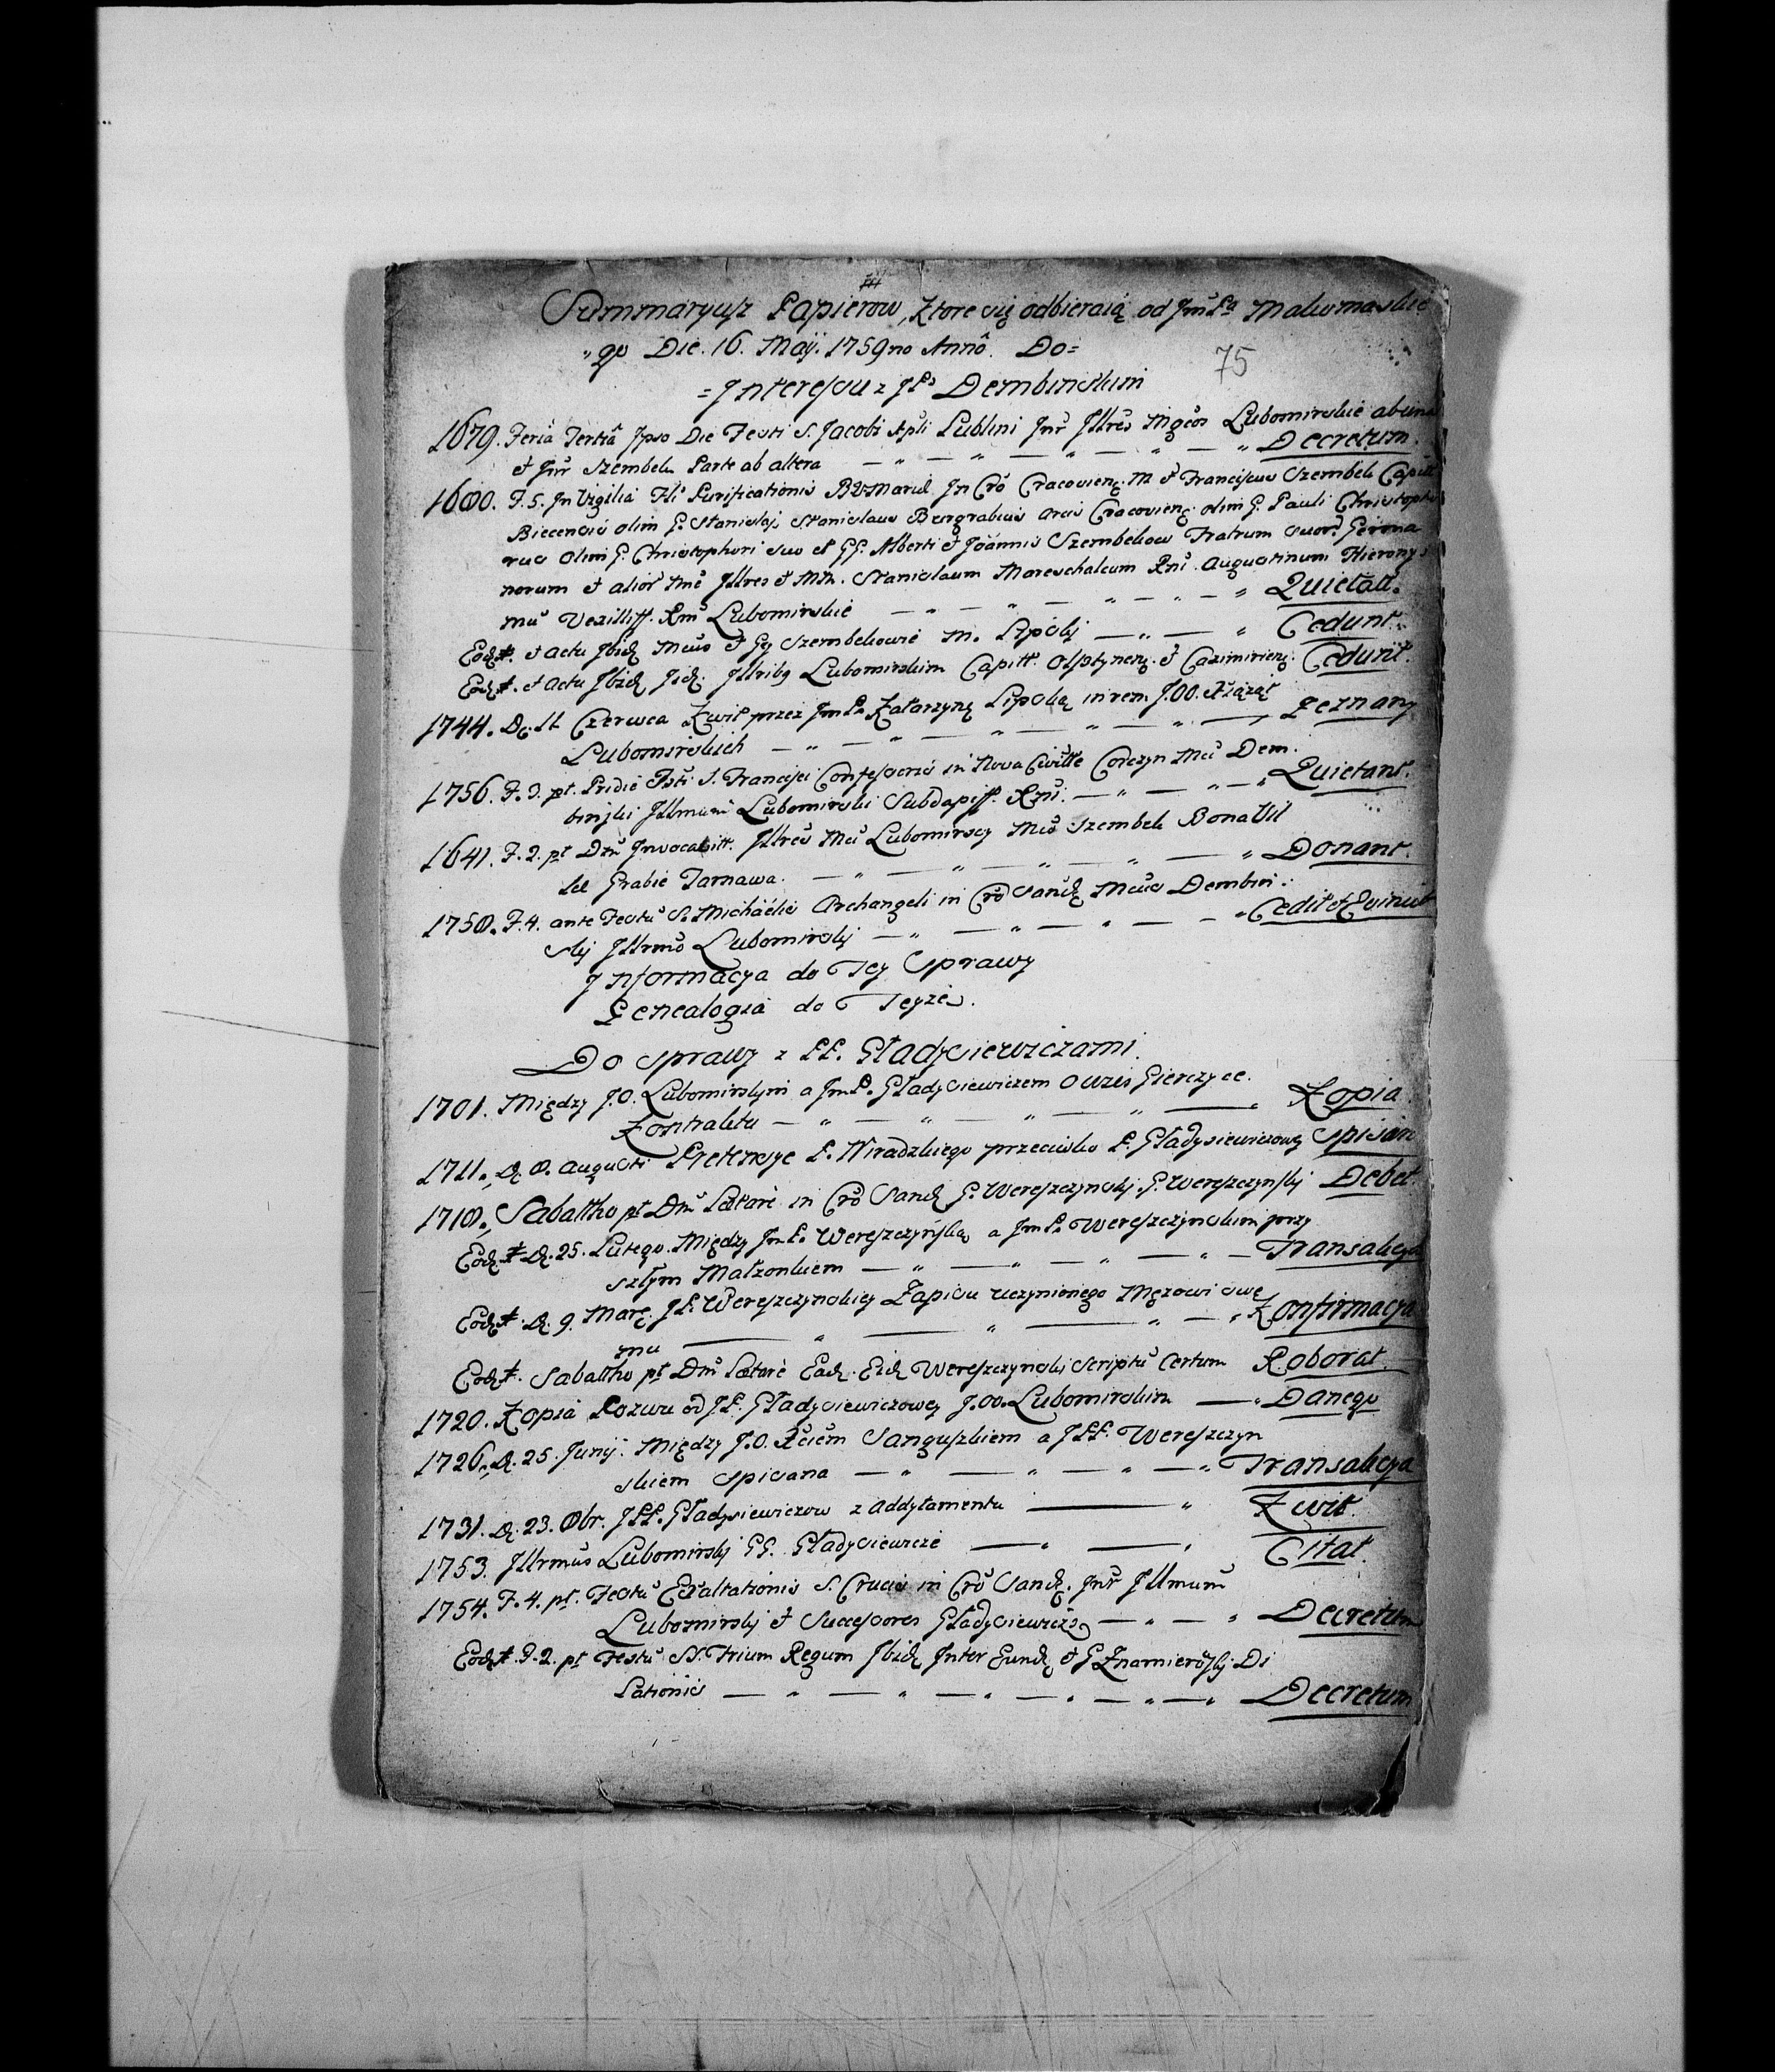 Summaryusz Papierow, Ktore się odbieraią od JmPa Makomaskie
"go Die. 16. Maÿ. 1759no Annô. Do=
75
=Interessu z JPo Dembinskim
1679. Feria Tertiâ Ipso Die Festi S. Jacobi Apli Lublini Inr Illres Mgcos Lubomirskie ab una
et Inr Szembek Parte ab altera — " — " — " — " — " Decretum.
1680. F. 5. In Vigilia Fti Purificationis BVMariæ In Cro Cracovien. M et Franciscus Szembek Capit
Biecensis olim G. Stanislai, Stanislaus Burgrabius Arcis Cracovien. olim G. Pauli Christopho
rus olim G. Christophori suo et GG. Alberti et Joannis Szembekow Fratrum suor. Germa
norum et alior nne Illres et MM. Stanislaum Mareschalcum Rni Augustinum Hierony
mu Vexillif. Rni Lubomirskie — " — " — " — " — " Quietatt.
Eod. et Actu Ibid. Mcus et GG Szembekowie M. Lipski — " — " Cedunt.
Eod. et Actu Ibid. Iid. Illribg Lubomirskim Capitt. Olsztynen. et Casimirien. Cedunt.
1744. D. 11 Czerwca Kwit przez JmP. Katarzynę Lipską in rem J.OO. Xiążąt
Lubomirskich — " — " — " — " — " — zeznany
1756. F. 3. pt. Pridie Fsti S. Francisci Confessoris in Nova Civitte Corczyn Mci Dem.
binski Illmum Lubomirski Subdapif. Rni. — " — " — " Quietant.
1641. F. 2. pt Dm Invocavitt. Illres Mci Lubomirscy Mco Szembek Bona Vil
læ Grabie Tarnawa. — " — " — " — " — " Donant.
1758. F. 4. ante Festu S. Michäelis Archangeli in Cro Sand. Mcus Dembin.
ski Illrmo Lubomirski — " — " — " — " Cedit et Evincit
Informacya do Tey Sprawy
Genealogia do Teyze.
Do Sprawy z PP. Gładysiewiczami.
1701. Między J.O. Lubomirskim a JmP. Gładysiewiczem o wieś Gierczyce.
Kontraktu — " — " — " — " — Kopia.
1711. D. 8. Augusti Pretensye P. Wiradzkiego przeciwko P. Gładysiewiczowy spisan
1718. Sabattho pt Dm Lætare in Cro Sand. G. Wereszczynski. G. Wereszczynski Debet
Eod. D. 25. Lutego. Między JmP. Wereszczyńską a JmP. Wereszczynskim przy
szłym Małzonkiem — " — " — " — " — Transakcya
Eod. D. 9. Marc. JP. Wereszczynskiey Zapisu uczynionego Mężowi swe
mu — " — " — " — " Konfirmacya
Eod. Sabattho pt Dm Lætare Ead. Eid. Wereszczynski Scriptu Certum Roborat.
1720. Kopia Pozwu od JP. Gładysiewiczowey J.OO. Lubomirskim — " Danego
1726. D. 25. Junij. Między J.O. Xciem Sanguszkiem a JPP. Wereszczyn
skiem spisana — " — " — " — " Transakcya
1731. D. 23. 8br. JPP. Gładysiewiczow z Addytamentu — " Kwit.
1753. Illrmus Lubomirski GG. Gładysiewicze — " — " Citat.
1754. F. 4. pt. Festu Exaltationis S. Crucis in Cro Sand. Inr Illmum
Lubomirski et Successores Gładysiewicz — " — " Decretum
Eod. F. 2. pt Festu SS. Trium Regum Ibid. Inter Eund. et G Znamieroski Di
lationis — " — " — " — " — " — " Decretum